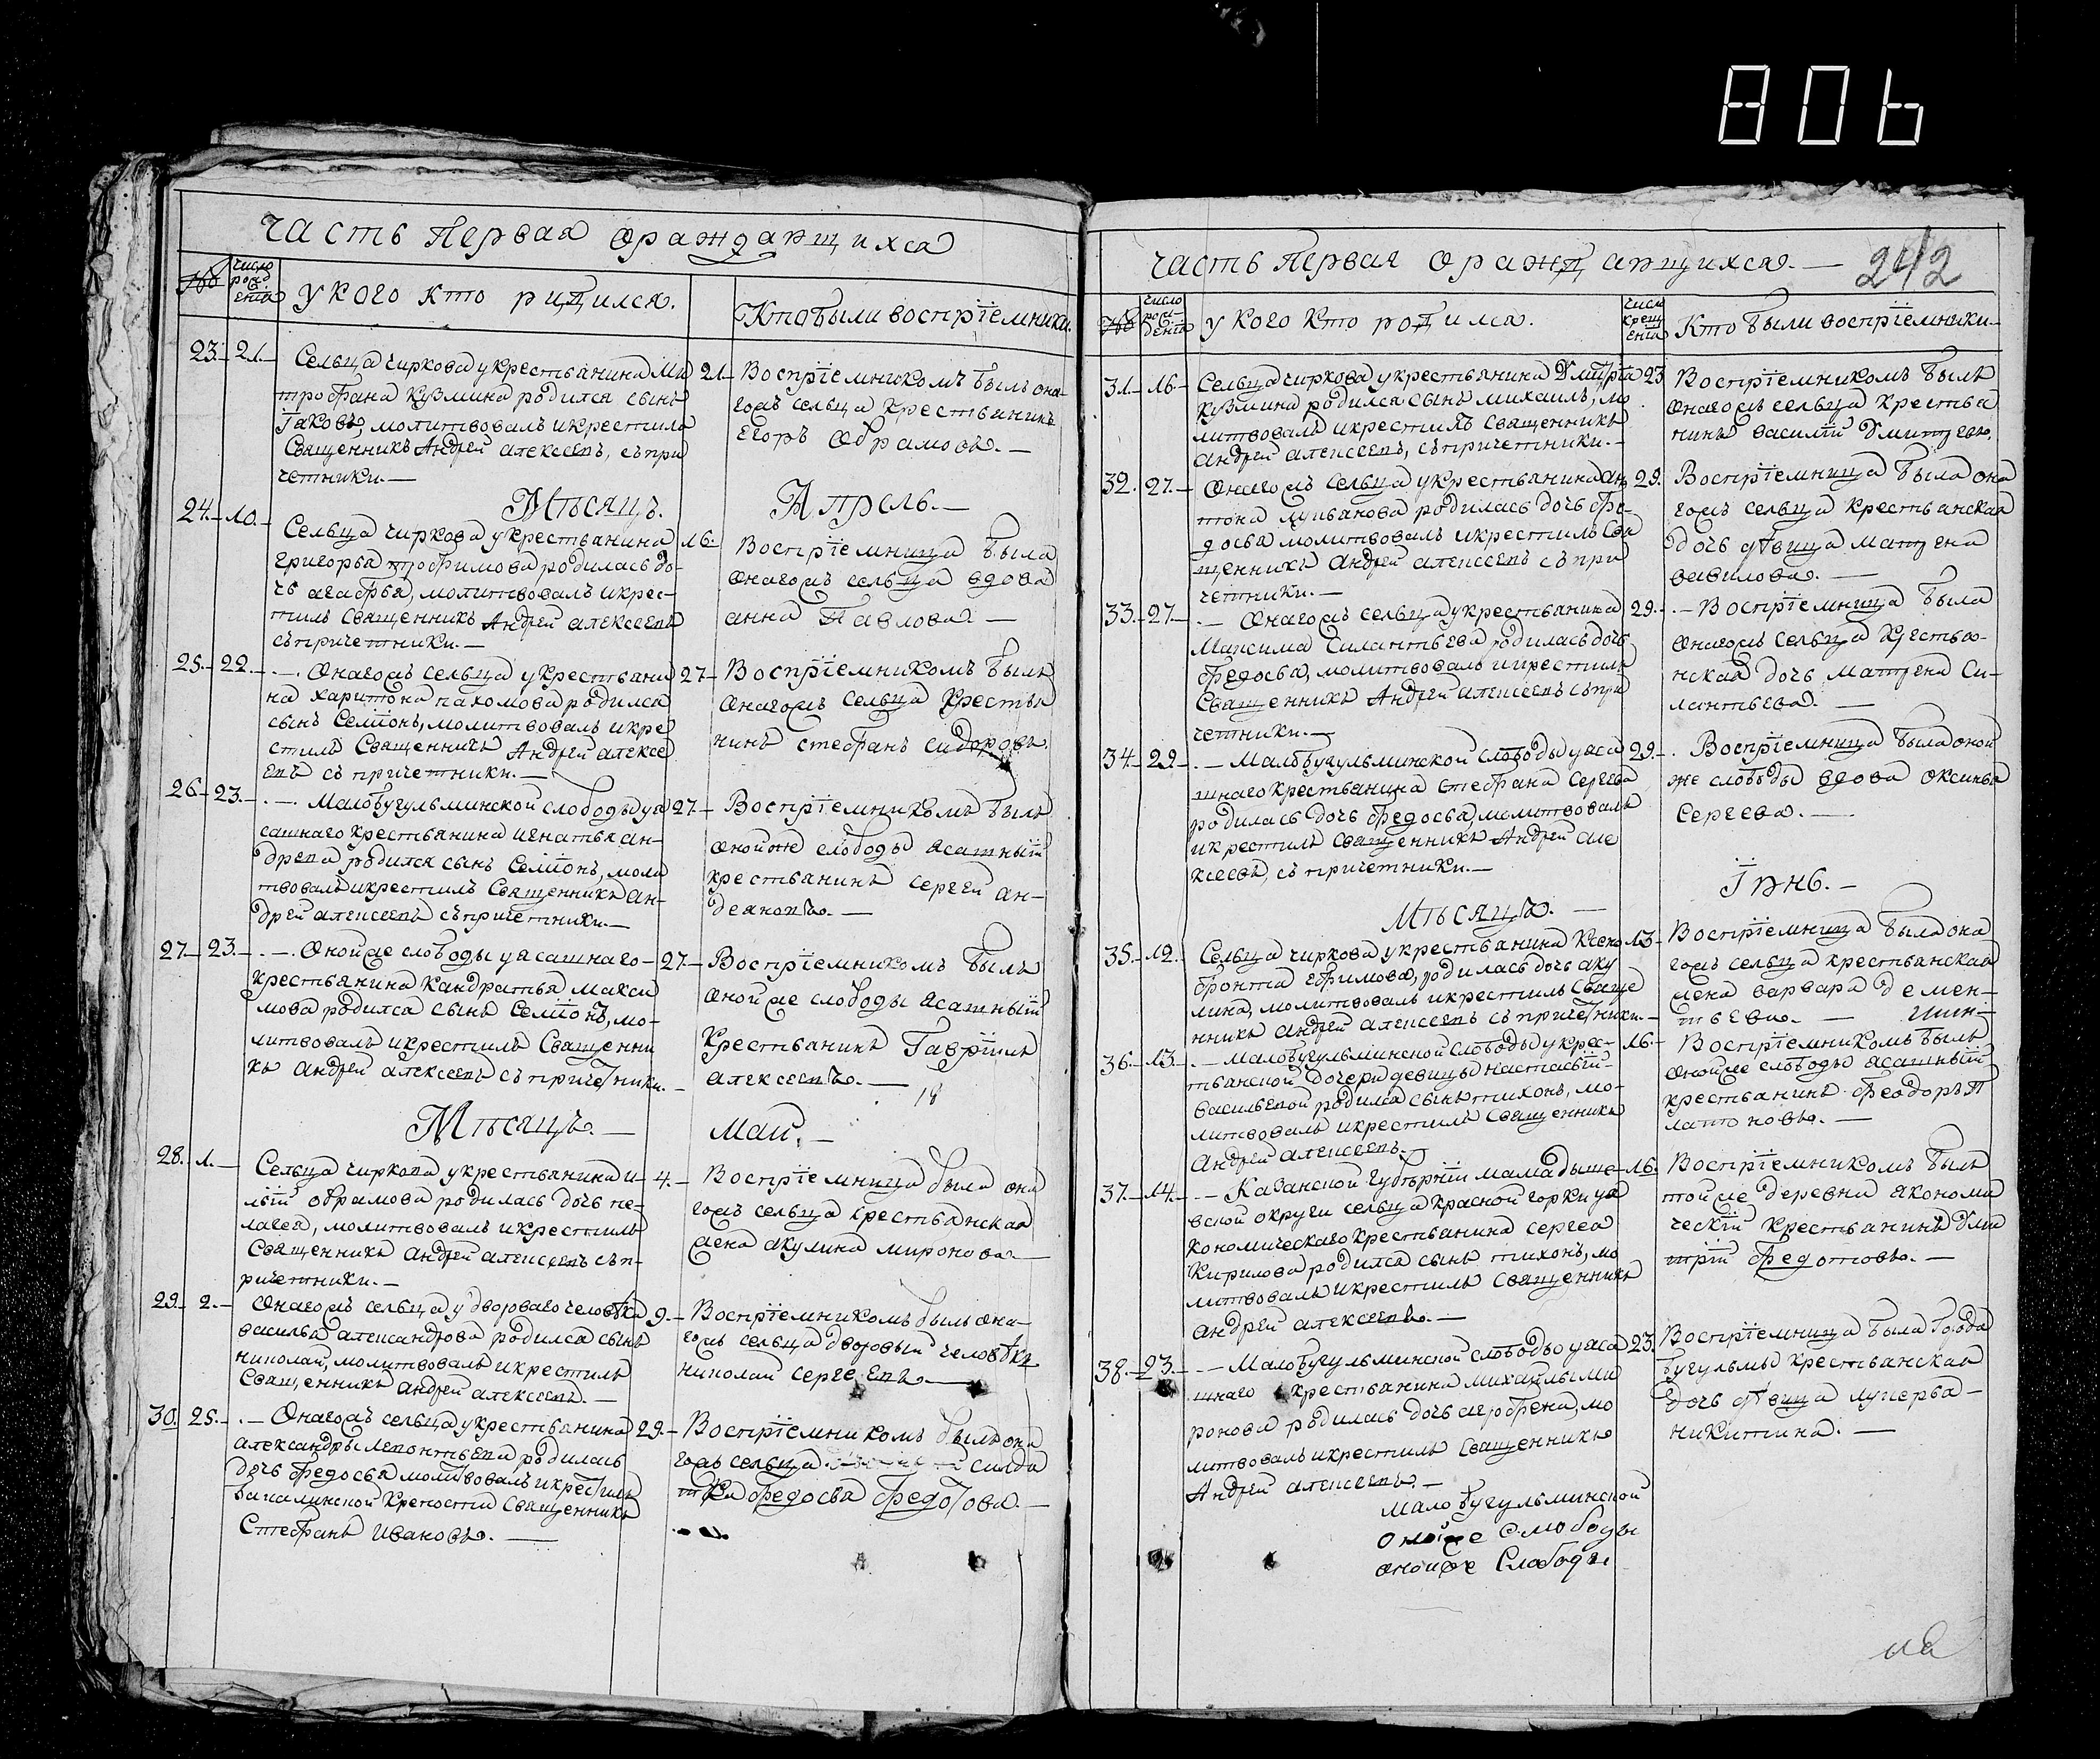 806
часть первая ораждающихся
№
число рождения
у кого кто родился.
Кто были воспрїемники.
23. 21.
Сельца чиркова у крестьянина Ми
трофана Кузмина родился сынъ
Їаковъ, молитвовалъ и крестилъ
Священникъ Андрей алексеевъ, съ при
четники.
21. Воспрїемникомъ былъ она
гожъ сельца крестьянинъ
Егоръ Абрамовъ.
Мѣсяцъ.
Апрель.
24. 10.
Сельца чиркова у крестьянина
григорья трофимова родилась до-
чь агафья, молитвовалъ и крес-
тилъ Священникъ Андрей алексеевъ
съ причетники.
16. Воспрїемница была
онагожъ сельца вдова
анна Павлова.
25. 22.
Онагожъ сельца у крестьяни
на харитона пахомова родился
сынъ Семїонъ, молитвовалъ и кре
стилъ Священникъ Андрей алексе
евъ съ причетники.
27. Воспрїемникомъ былъ
онагожъ сельца крестья
нинъ стефанъ сидоровъ
26. 23.
Малобугульминской слободы у я
сашнаго крестьянина игнатья ан-
дреева родился сынъ Семїонъ, моли
твовалъ и крестилъ Священникъ ан-
дрей алексеевъ съ причетники.
27. Воспрїемникомъ былъ
оной же слободы ясашный
крестьянинъ сергей ан-
деяновъ.
27. 23.
Оной же слободы у ясашнаго
крестьянина кандратья макси
мова родился сынъ Семїонъ, мо-
литвовалъ и крестилъ Священни
къ андрей алексеевъ съ причетники.
27. Воспрїемникомъ былъ
оной же слободы ясашный
крестьянинъ Гаврїилъ
алексеевъ.
18
Мѣсяцъ.
Маи.
28. 1.
Сельца чиркова у крестьянина и-
льи обрамова родилась дочь пе-
лагея, молитвовалъ и крестилъ
Священникъ андрей алексеевъ съ п-
ричетники.
4. Воспрїемница была она
гожъ сельца крестьянская
жена акулина миронова
29. 2.
Онагожъ сельца у двороваго человѣка
василья александрова родился сынъ
николай, молитвовалъ и крестилъ
Священникъ андрей алексеевъ.
9. Воспрїемникомъ былъ она-
гожъ сельца дворовый человѣкъ
николай сергеевъ.
30. 25.
Онагожъ сельца у крестьянина
александры леонтьева родилась
дочь федосья молитвовалъ и крестилъ
бакалинской крепости Священникъ
Стефанъ Ивановъ.
29. Воспрїемникомъ былъ она
гожъ сельца солда
тка федосья федотова.
часть первая ораждающихся.
242
№
число рождения
у кого кто родился.
число крещения
Кто были воспрїемники
31. 16.
Сельца чиркова у крестьянина Дмитрїа
кузмина родился сынъ михаилъ, мо
литвовалъ и крестилъ Священникъ
андрей алексеевъ, съ причетники.
23 Воспрїемникомъ былъ
онагожъ сельца крестья
нинъ василїй Дмитревъ.
32. 27.
Онагожъ сельца у крестьянина ан
тона родилась дочь фе-
досья молитвовалъ и крестилъ Свя
щенникъ андрей алексеевъ съ при
четники.
29. Воспрїемница была она
гожъ сельца крестьянская
дочь дѣвица матрена
вавилова.
33. 27.
Онагожъ сельца у крестьянина
Максима Силантьева родилась дочь
федосья, молитвовалъ и крестилъ
Священникъ Андрей алексеевъ съ при
четники.
29. Воспрїемница была
онагожъ сельца крестья-
нская дочь матрена Си-
лантьева.
34. 29.
Малобугульминской слободы у яса
шнаго крестьянина стефана Сергева
родилась дочь федосья, молитвовалъ
и крестилъ Священникъ Андрей але
ксеевъ, съ причетники.
29. Воспрїемница была оной
же слободы вдова оксинья
Сергеева.
Мѣсяцъ.
Їюнь.
35. 12.
Сельца чиркова у крестьянина Ксено
фонта ефимова, родилась дочь аку
лина, молитвовалъ и крестилъ Свяще
нникъ андрей алексеевъ съ причетники.
13. Воспрїемница была она
гожъ сельца крестьянская
жена варвара демен-
тьева.
36. 13.
Малобугульминской слободы у крес-
тьянской дочери девицы настасьи
васильевой родился сынъ тихонъ, мо-
литвовалъ и крестилъ Священникъ
Андрей алексеевъ.
16. Воспрїемникомъ былъ
оной же слободы ясашный
крестьянинъ Феодоръ П
латоновъ.
37. 14.
Казанской Губернїи мамадыше
вской округи сельца красной горки у я
кономическаго крестьянина сергея
Кирилова родился сынъ тихонъ, мо
литвовалъ и крестилъ Священникъ
андрей алексеевъ.
16. Воспрїемникомъ былъ
той же деревни якономи
ческїй крестьянинъ Дми
трїй федотовъ.
38. 23.
Малобугульминской слободы у яса
шнаго крестьянина михайлы ми
ронова родилась дочь агрофена, мо
литвовалъ и крестилъ Священникъ
Андрей алексеевъ.
23. Воспрїемница была города
бугульмы крестьянская
дочь дѣвица лукерья
никитина.
малобугульминской
оной же слободы
оной же Слободы